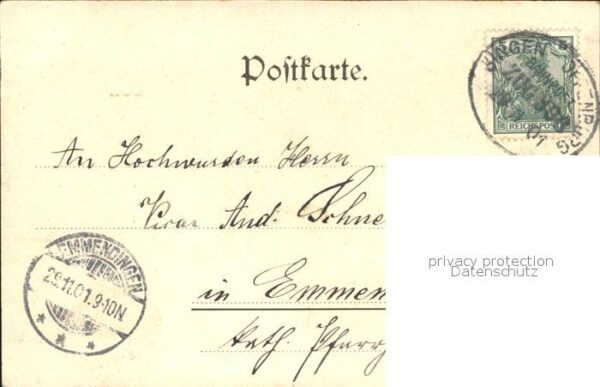 Postkarte.
REICHSPOST
OFFENBURG
01
An Hochwürden Herrn
Vicar And. Schne
EMMENDINGEN
29.11.01.9-10N.
in Emmen
Kath. Pfarr
privacy protection
Datenschutz